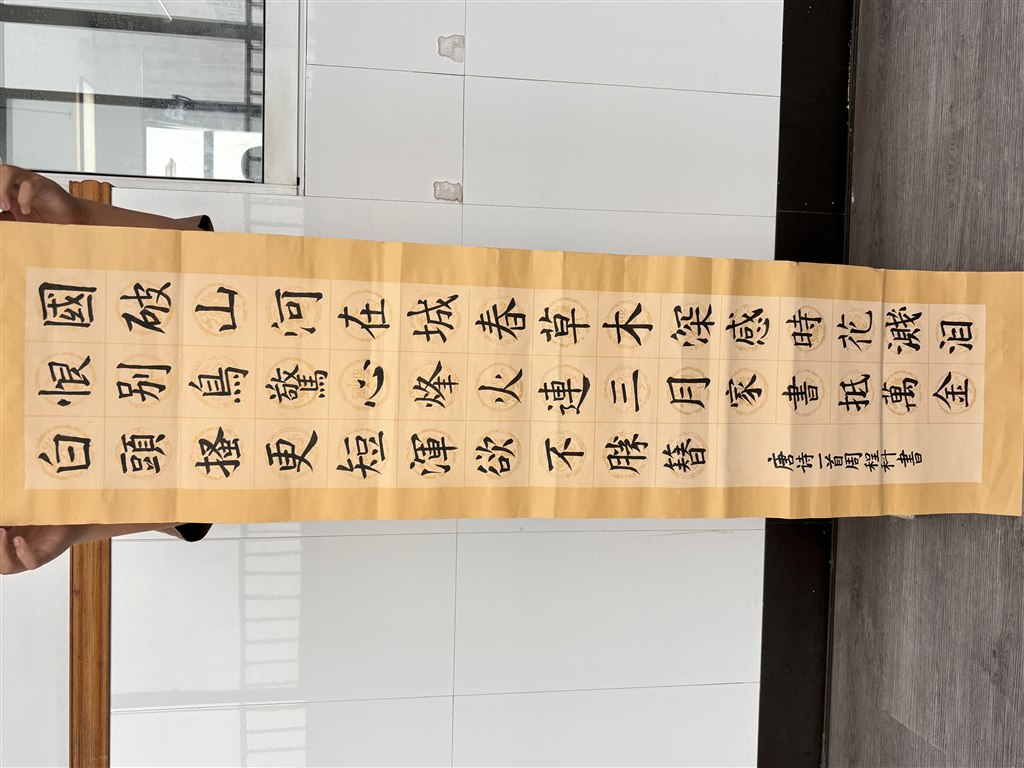 國破山河在城春草木深感時花濺泪
恨别鳥驚心烽火連三月家書抵萬金
白頭搔更短渾欲不勝簪
唐诗一首周程科書